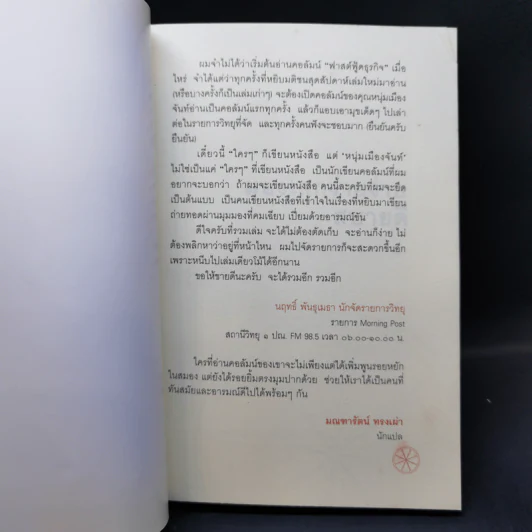 ผมจำไม่ได้ว่าเริ่มต้นอ่านคอลัมน์ "ฟาสต์ฟู้ดธุรกิจ" เมื่อ
ใหร่ จำได้แต่ว่าทุกครั้งที่หยิบมติชนสุดสัปดาห์เล่มใหม่มาอ่าน
(หรือบางครั้งก็เป็นเล่มเก่าๆ) จะต้องเปิดคอลัมน์ของคุณหนุ่มเมือง
จันท์อ่านเป็นคอลัมน์แรกทุกครั้ง แล้วก็แอบเอามุขเด็ดๆ ไปเล่า
ต่อในรายการวิทยุที่จัด และทุกครั้งคนฟังจะชอบมาก (ยืนยันครับ
ยืนยัน)
เดี๋ยวนี้ "ใครๆ" ก็เขียนหนังสือ แต่ 'หนุ่มเมืองจันท์'
ไม่ใช่เป็นแค่ "ใครๆ" ที่เขียนหนังสือ เป็นนักเขียนคอลัมน์ที่ผม
อยากจะบอกว่า ถ้าผมจะเขียนหนังสือ คนนี้ละครับที่ผมจะยึด
เป็นต้นแบบ เป็นคนเขียนหนังสือที่เข้าใจในเรื่องที่หยิบมาเขียน
ถ่ายทอดผ่านมุมมองที่คมเฉียบ เปี่ยมด้วยอารมณ์ขัน
ดีใจครับที่รวมเล่ม จะได้ไม่ต้องตัดเก็บ จะอ่านก็ง่าย ไม่
ต้องพลิกหาว่าอยู่ที่หน้าไหน ผมไปจัดรายการก็จะสะดวกขึ้นอีก
เพราะหนีบไปเล่มเดียวโม้ได้อีกนาน
ขอให้ขายดีนะครับ จะได้รวมอีก รวมอีก
นฤทธิ์ พันธุเมธา นักจัดรายการวิทยุ
รายการ Morning Post
สถานีวิทยุ ๑ ปณ. FM 98.5 เวลา ๐๖.๐๐-๑๐.๐๐ น.
ใครที่อ่านคอลัมน์ของเขาจะไม่เพียงแต่ได้เพิ่มพูนรอยหยัก
ในสมอง แต่ยังได้รอยยิ้มตรงมุมปากด้วย ช่วยให้เราได้เป็นคนที่
ทันสมัยและอารมณ์ดีไปได้พร้อมๆ กัน
มณฑารัตน์ ทรงเผ่า
นักแปล